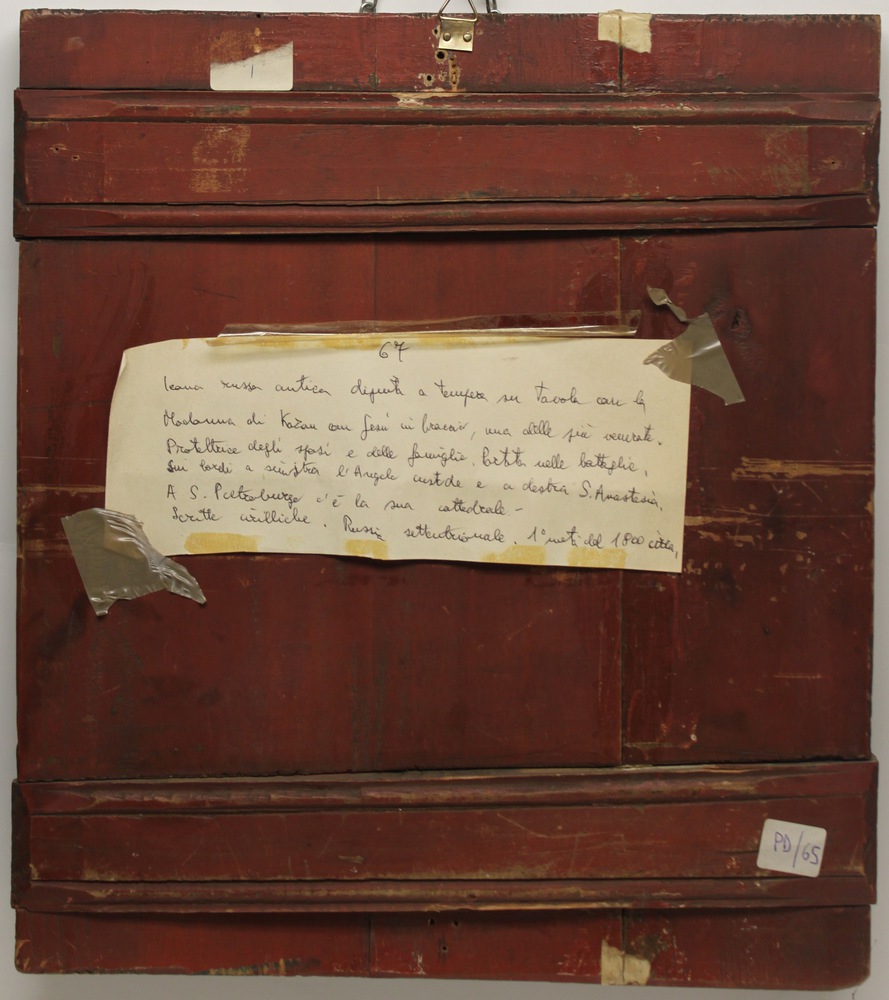 1
67
Icona russa antica dipinta a tempera su tavola con la
Madonna di Kazan con Gesù in braccio, una delle più venerate.
Protettrice degli sposi e delle famiglie. Portata nelle battaglie.
Sui bordi a sinistra l'Angelo custode e a destra S. Anastasia.
A S. Pietroburgo c'è la sua cattedrale.-
Scritte cirilliche. Russia settentrionale. 1° metà del 1800 circa.
PD/65